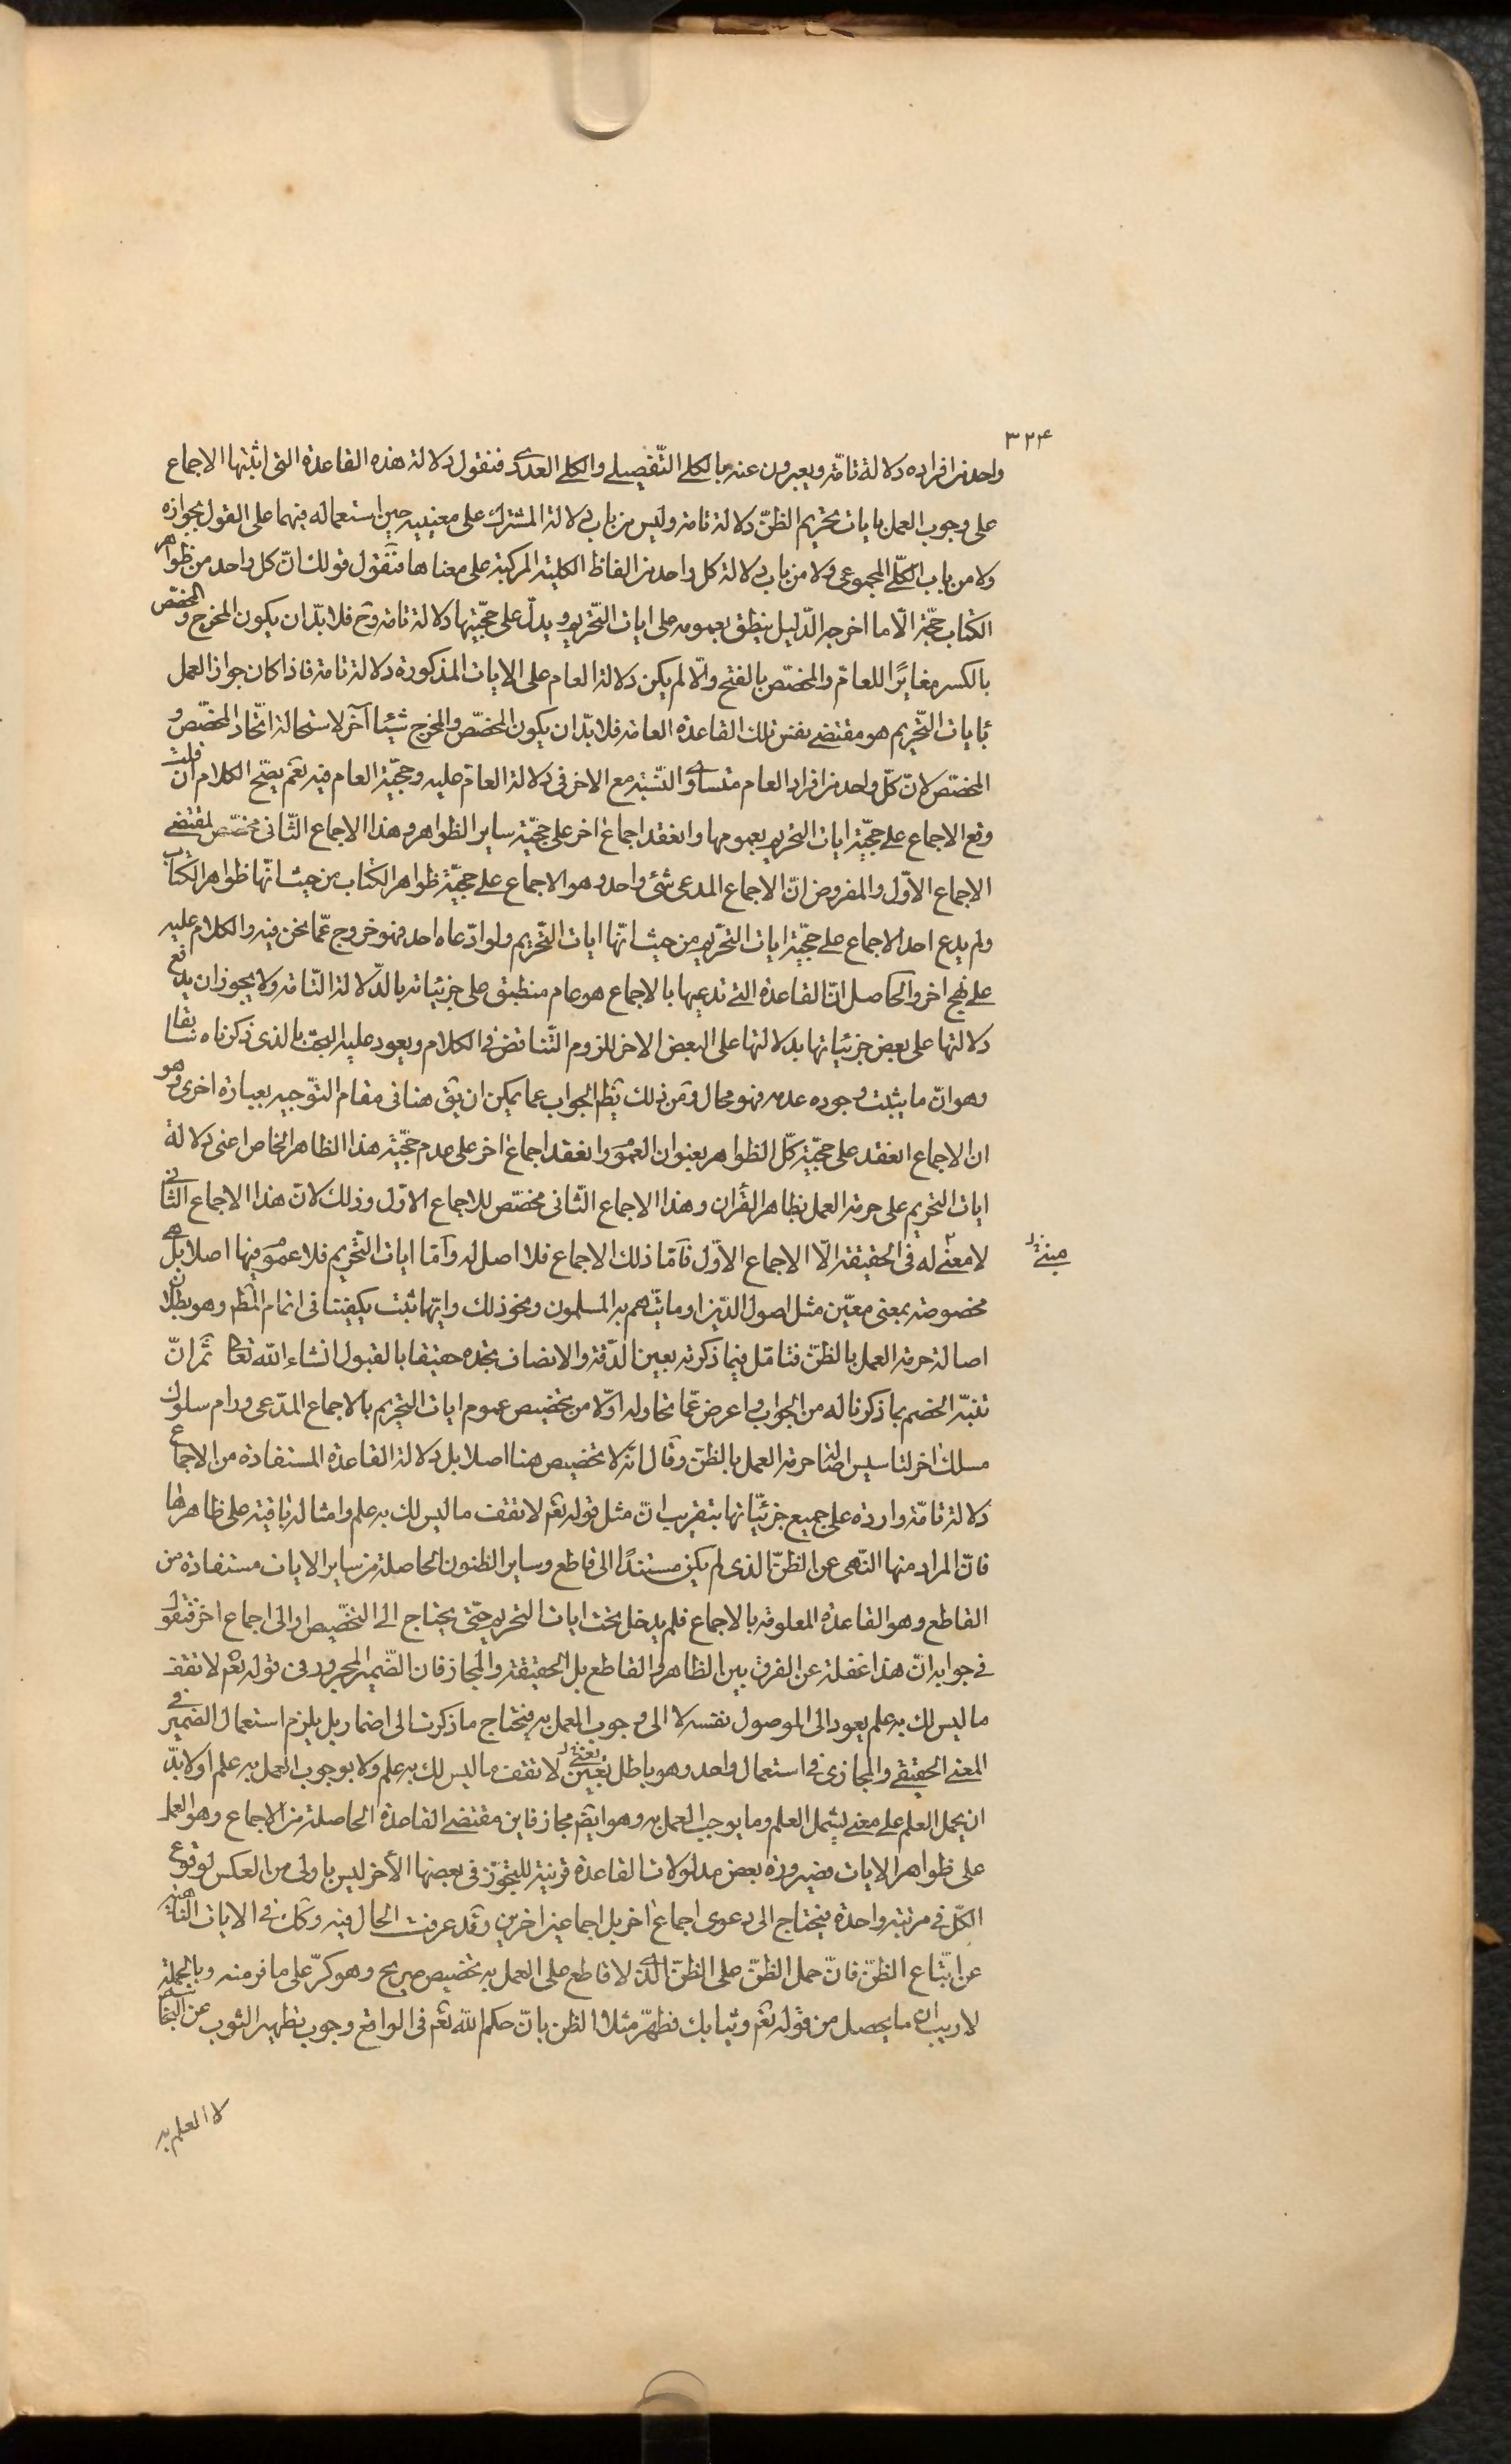 ٣٢۴
واحد من افراده دلالة تامّة ويعبرون عنه بالكلي التّفصيلي والكلي العددي فنقول دلالة هذه القاعدة التي اثبتها الاجماع
على وجوب العمل بايات تحريم الظنّ دلالة تامة وليس من باب دلالة المشترك على معنييه حين استعماله فيهما على القول بجوازه
ولا من باب الكلّي المجموعي ولا من باب دلالة كل واحد من الفاظ الكلية المركبة على معناها فنقول قولك انّ كل واحد من ظواهر
الكتاب حجّة الّا ما اخرجه الدّليل ينطق بعمومه على ايات التّحريم ويدلّ على حجّيتها دلالة تامة وح فلا بدّ ان يكون المخرج والمخصّص
بالكسر مغايرًا للعام والمخصّص بالفتح والّا لم يكن دلالة العام على الايات المذكورة دلالة تامة فاذا كان جواز العمل
بايات التّحريم هو مقتضى نفس تلك القاعدة العامة فلا بدّ ان يكون المخصّص والمخرج شيئا آخر لاستحالة اتّحاد المخصّص و
المخصّص لانّ كلّ واحد من افراد العام متساوي النّسبة مع الاخر في دلالة العام عليه وحجّية العام فيه نعم يصّح الكلام ان قلت
وقع الاجماع على حجّية ايات التحريم بعمومها وانعقد اجماع اخر على حجّية ساير الظواهر وهذا الاجماع الثّاني مخصّص لمقتضى
الاجماع الاوّل والمفروض انّ الاجماع المدعى شئ واحد وهو الاجماع على حجيّة ظواهر الكتاب من حيث انّها ظواهر الكتاب
ولم يدع احد الاجماع على حجّية ايات التّحريم من حيث انّها ايات التّحريم ولو ادّعاه احد فهو خروج عمّا نحن فيه والكلام عليه
على نهج اخر والحاصل انّ القاعدة التي تدعيها بالاجماع هو عام منطبق على جزئياته بالدّلالة التّامة ولا يجوز ان يدفع
دلالتها على بعض جزئياتها بدلالتها على البعض الاخر للزوم التّناقض في الكلام ويعود عليه البحث بالذي ذكرناه سابقا
وهو انّ ما يثبت وجوده عدمه فهو محال ومن ذلك يظهر الجواب عما يمكن ان يق هنا في مقام التّوجيه بعبارة اخرى وهو
ان الاجماع انعقد على حجّية كلّ الظواهر بعنوان العموم وانعقد اجماع اخر على عدم حجّية هذا الظاهر الخاص اعني دلالة
ايات التحريم على حرمة العمل بظاهر القرآن وهذا الاجماع الثّاني مخصّص للاجماع الاوّل وذلك لانّ هذا الاجماع الثّاني
لا معنى له في الحقيقة الّا الاجماع الاوّل فامّا ذلك الاجماع فلا اصل له وامّا ايات التّحريم فلا عموم فيها اصلا بل هي
مخصوصة بمعنى معيّن مثل اصول الدّين او ما يتّهم به المسلمون ونحو ذلك وايّهما ثبت يكفينا في اتمام المط وهو بطلان
اصالة حرمة العمل بالظنّ فتامّل فيما ذكرته بعين الدّقة والانصاف تجده حقيقا بالقبول انشاء اللّه تعالى ثمّ انّ
تنبّه الخصم بما ذكرنا له من الجواب واعرض عمّا تحاوله اوّلا من تخصيص عموم ايات التحريم بالاجماع المدّعى ورام سلوك
مسلك اخر لتاسيس اصالة حرمة العمل بالظنّ وقال انّه لا تخصيص هنا اصلا بل دلالة القاعدة المستفادة من الاجماع
دلالة تامّة واردة على جميع جزئيّاتها بتقريب انّ مثل قوله تعم لا تقف ما ليس لك به علم وامثاله باقية على ظاهرها
فانّ المراد منها النّهى عن الظنّ الذى لم يكن مستندًا الى قاطع وساير الظنون الحاصلة من ساير الايات مستفادة من
القاطع وهو القاعدة المعلومة بالاجماع فلم يدخل تحت ايات التحريم حتّى يحتاج الى التخصّيص او الى اجماع اخر فنقول
في جوابه انّ هذا غفلة عن الفرق بين الظاهر والقاطع بل الحقيقة والمجاز فان الضّمير المجرور في قوله تعم لا تقف
ما ليس لك به علم يعود الى الموصول نفسه لا الى وجوب العمل به فيحتاج ما ذكرت الى اضمار بل يلزم استعمال الضمير في
المعنى الحقيقي والمجازى في استعمال واحد وهو باطل يعني لا تقف ما ليس لك به علم ولا بوجوب العمل به علم او لا بدّ
ان يحمل العلم على معنى يشمل العلم وما يوجب العمل به وهو ايضم مجاز فاين مقتضى القاعدة الحاصلة من الاجماع وهو العمل
على ظواهر الايات فصيرورة بعض مدلولات القاعدة قرينة للتجوّز في بعضها الأخر ليس باولى من العكس لوقوع
الكلّ في مرتبة واحدة فيحتاج الى دعوى اجماع اخر بل اجماعين اخرين وقد عرفت الحال فيه وكك في الايات النّاهية
عن اتّباع الظنّ فانّ حمل الظنّ على الظنّ الّذي لا قاطع على العمل به تخصيص صريح وهو كرّ على ما فر منه وبالجملة
لا ريب ان ما يحصل من قوله تعم وثيابك فطهّر مثلا الظن بانّ حكم اللّه تعم في الواقع وجوب تطهير الثوب عن النجاسة
لا العلم به